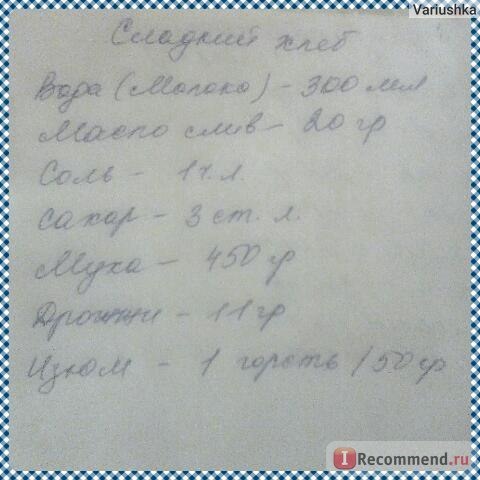 Variushka
Сладкий хлеб
Вода (Молоко) - 300 мл
Масло слив - 20 гр
Соль - 1 ч. л.
Сахар - 3 ст. л.
Мука - 450 гр
Дрожжи - 11 гр
Изюм - 1 горсть / 50 гр
I Recommend.ru